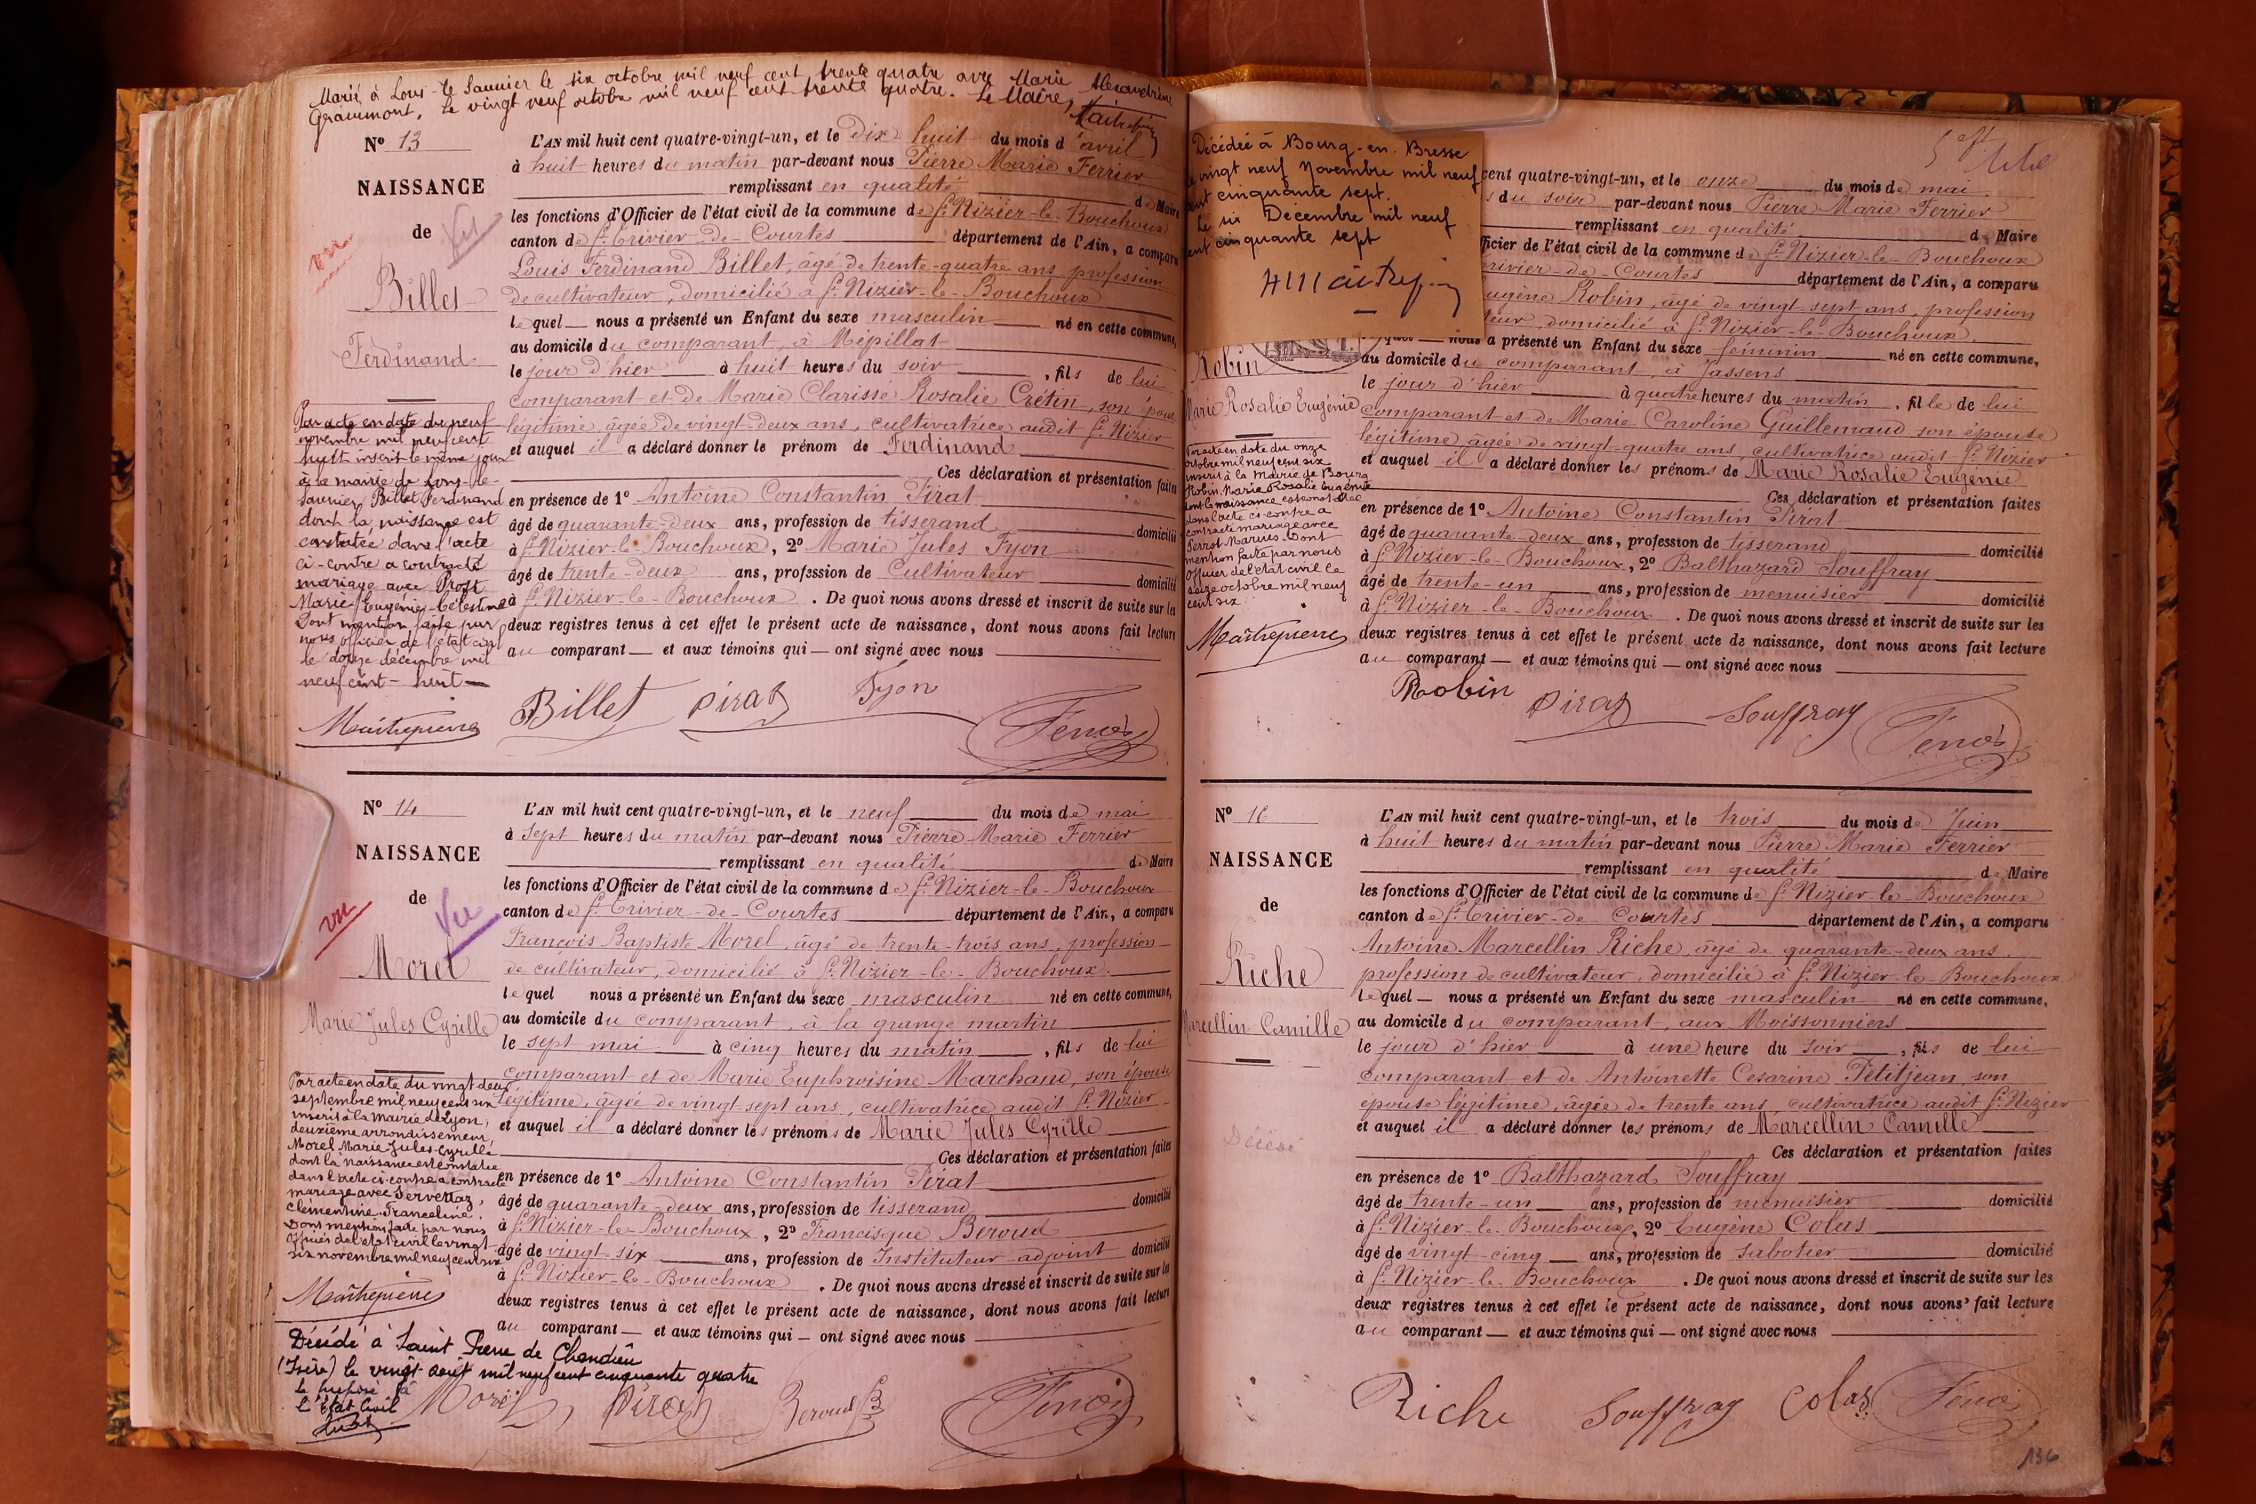 Marié à Lons-le-Saunier le six octobre mil neuf cent trente quatre avec Marie Alexandrine
Grammont. Le vingt neuf octobre mil neuf cent trente quatre. Le Maire,
Nº 13
NAISSANCE
de
vu
Vu
Billet
Ferdinand
L'AN mil huit cent quatre-vingt-un, et le dix huit du mois d'avril
à huit heures du matin par-devant nous Pierre Marie Ferrier
remplissant en qualité de Maire
les fonctions d'Officier de l'état civil de la commune de St. Nizier-le-Bouchoux
canton de St. Trivier-de-Courtes département de l'Ain, a comparu
Louis Ferdinand Billet, âgé de trente-quatre ans profession
de cultivateur, domicilié à St. Nizier-le-Bouchoux
lequel nous a présenté un Enfant du sexe masculin né en cette commune,
au domicile du comparant, à Mépillat
le jour d'hier à huit heures du soir, fils de lui
comparant et de Marie Clarisse Rosalie Crétin, son épouse
légitime, âgée de vingt-deux ans, cultivatrice audit St. Nizier
et auquel il a déclaré donner le prénom de Ferdinand
Ces déclaration et présentation faites
en présence de 1º Antoine Constantin Pirat
âgé de quarante-deux ans, profession de tisserand domicilié
à St. Nizier-le-Bouchoux, 2º Marie Jules Fyon
âgé de trente-deux ans, profession de Cultivateur domicilié
à St. Nizier-le-Bouchoux. De quoi nous avons dressé et inscrit de suite sur les
deux registres tenus à cet effet le présent acte de naissance, dont nous avons fait lecture
au comparant — et aux témoins qui — ont signé avec nous
Par acte en date du neuf
novembre mil neuf cent
huit inscrit le même jour
à la mairie de Lons-le-
Saunier Billet Ferdinand
dont la naissance est
constatée dans l'acte
ci-contre a contracté
mariage avec Prost
Marie Eugénie Célestine
Dont mention faite par
nous officier de l'état civil
le douze décembre mil
neuf cent-huit
Maîtrepierre
Billet Pirat Fyon
Nº 14
NAISSANCE
de
vu
Vu
Morel
Marie Jules Cyrille
L'AN mil huit cent quatre-vingt-un, et le neuf du mois de mai
à sept heures du matin par-devant nous Pierre Marie Ferrier
remplissant en qualité de Maire
les fonctions d'Officier de l'état civil de la commune de St. Nizier-le-Bouchoux
canton de St. Trivier-de-Courtes département de l'Ain, a comparu
François Baptiste Morel, âgé de trente-trois ans, profession
de cultivateur, domicilié à St. Nizier-le-Bouchoux.
lequel nous a présenté un Enfant du sexe masculin né en cette commune,
au domicile du comparant, à la grange martin
le sept mai à cinq heures du matin, fils de lui
comparant et de Marie Euphroisine Marchand, son épouse
légitime, âgée de vingt sept ans, cultivatrice audit St. Nizier
et auquel il a déclaré donner les prénoms de Marie Jules Cyrille
Ces déclaration et présentation faites
en présence de 1º Antoine Constantin Pirat
âgé de quarante-deux ans, profession de tisserand domicilié
à St. Nizier-le-Bouchoux, 2º Francisque Beroud
âgé de vingt-six ans, profession de Instituteur adjoint domicilié
à St. Nizier-le-Bouchoux. De quoi nous avons dressé et inscrit de suite sur les
deux registres tenus à cet effet le présent acte de naissance, dont nous avons fait lecture
au comparant — et aux témoins qui — ont signé avec nous
Par acte en date du vingt deux
septembre mil neuf cent six
inscrit à la Mairie de Lyon,
deuxième arrondissement,
Morel Marie Jules Cyrille
dont la naissance est constatée
dans l'acte ci-contre a contracté
mariage avec Servettaz,
Clémentine Franceline.
Dont mention faite par nous
officier de l'état civil le vingt-
six novembre mil neuf cent six
Maîtrepierre
Décédé à Saint Pierre de Chandieu
(Isère) le vingt août mil neuf cent cinquante quatre
Le préposé à
l'état Civil
Morel Pirat Beroud
Décédée à Bourg-en-Bresse
le vingt neuf Novembre mil neuf
cent cinquante sept.
Le six Décembre mil neuf
cent cinquante sept
Robin
Marie Rosalie Eugénie
cent quatre-vingt-un, et le onze du mois de mai
s du soir par-devant nous Pierre Marie Ferrier
remplissant en qualité de Maire
fficier de l'état civil de la commune de St. Nizier-le-Bouchoux
rivier-de-Courtes département de l'Ain, a comparu
ugène Robin, âgé de vingt-sept ans, profession
teur, domicilié à St. Nizier-le-Bouchoux.
quel — nous a présenté un Enfant du sexe féminin né en cette commune,
au domicile du comparant, à Jassens
le jour d'hier à quatre heures du matin, fille de lui
comparant et de Marie Caroline Guillemaud son épouse
légitime âgée de vingt-quatre ans, cultivatrice audit St. Nizier
et auquel il a déclaré donner les prénoms de Marie Rosalie Eugénie
Ces déclaration et présentation faites
en présence de 1º Antoine Constantin Pirat
âgé de quarante-deux ans, profession de tisserand domicilié
à St. Nizier-le-Bouchoux, 2º Balthazard Souffray
âgé de trente-un ans, profession de menuisier domicilié
à St. Nizier-le-Bouchoux. De quoi nous avons dressé et inscrit de suite sur les
deux registres tenus à cet effet le présent acte de naissance, dont nous avons fait lecture
au comparant — et aux témoins qui — ont signé avec nous
Par acte en date du onze
octobre mil neuf cent six
inscrit à la Mairie de Bourg
Robin Marie Rosalie Eugénie
dont la naissance est constatée
dans l'acte ci-contre a
contracté mariage avec
Perrot Marius. Dont
mention faite par nous
Officier de l'état civil le
seize octobre mil neuf
cent six.
Maîtrepierre
Robin Pirat Souffray
Nº 16
NAISSANCE
de
Riche
Marcellin Camille
Décédé
L'AN mil huit cent quatre-vingt-un, et le trois du mois de Juin
à huit heures du matin par-devant nous Pierre Marie Ferrier
remplissant en qualité de Maire
les fonctions d'Officier de l'état civil de la commune de St. Nizier-le-Bouchoux
canton de St. Trivier-de-Courtes département de l'Ain, a comparu
Antoine Marcellin Riche, âgé de quarante-deux ans.
profession de cultivateur, domicilié à St. Nizier-le-Bouchoux
lequel — nous a présenté un Enfant du sexe masculin né en cette commune,
au domicile du comparant, aux Moissonniers
le jour d'hier à une heure du soir, fils de lui
comparant et de Antoinette Cesarine Petitjean, son
épouse légitime, âgée de trente ans, cultivatrice audit St. Nizier
et auquel il a déclaré donner les prénoms de Marcellin Camille
Ces déclaration et présentation faites
en présence de 1º Balthazard Souffray
âgé de trente-un ans, profession de menuisier domicilié
à St. Nizier-le-Bouchoux, 2º Eugène Colas
âgé de vingt-cinq ans, profession de sabotier domicilié
à St. Nizier-le-Bouchoux. De quoi nous avons dressé et inscrit de suite sur les
deux registres tenus à cet effet le présent acte de naissance, dont nous avons fait lecture
au comparant — et aux témoins qui — ont signé avec nous
Riche Souffray Colas
136